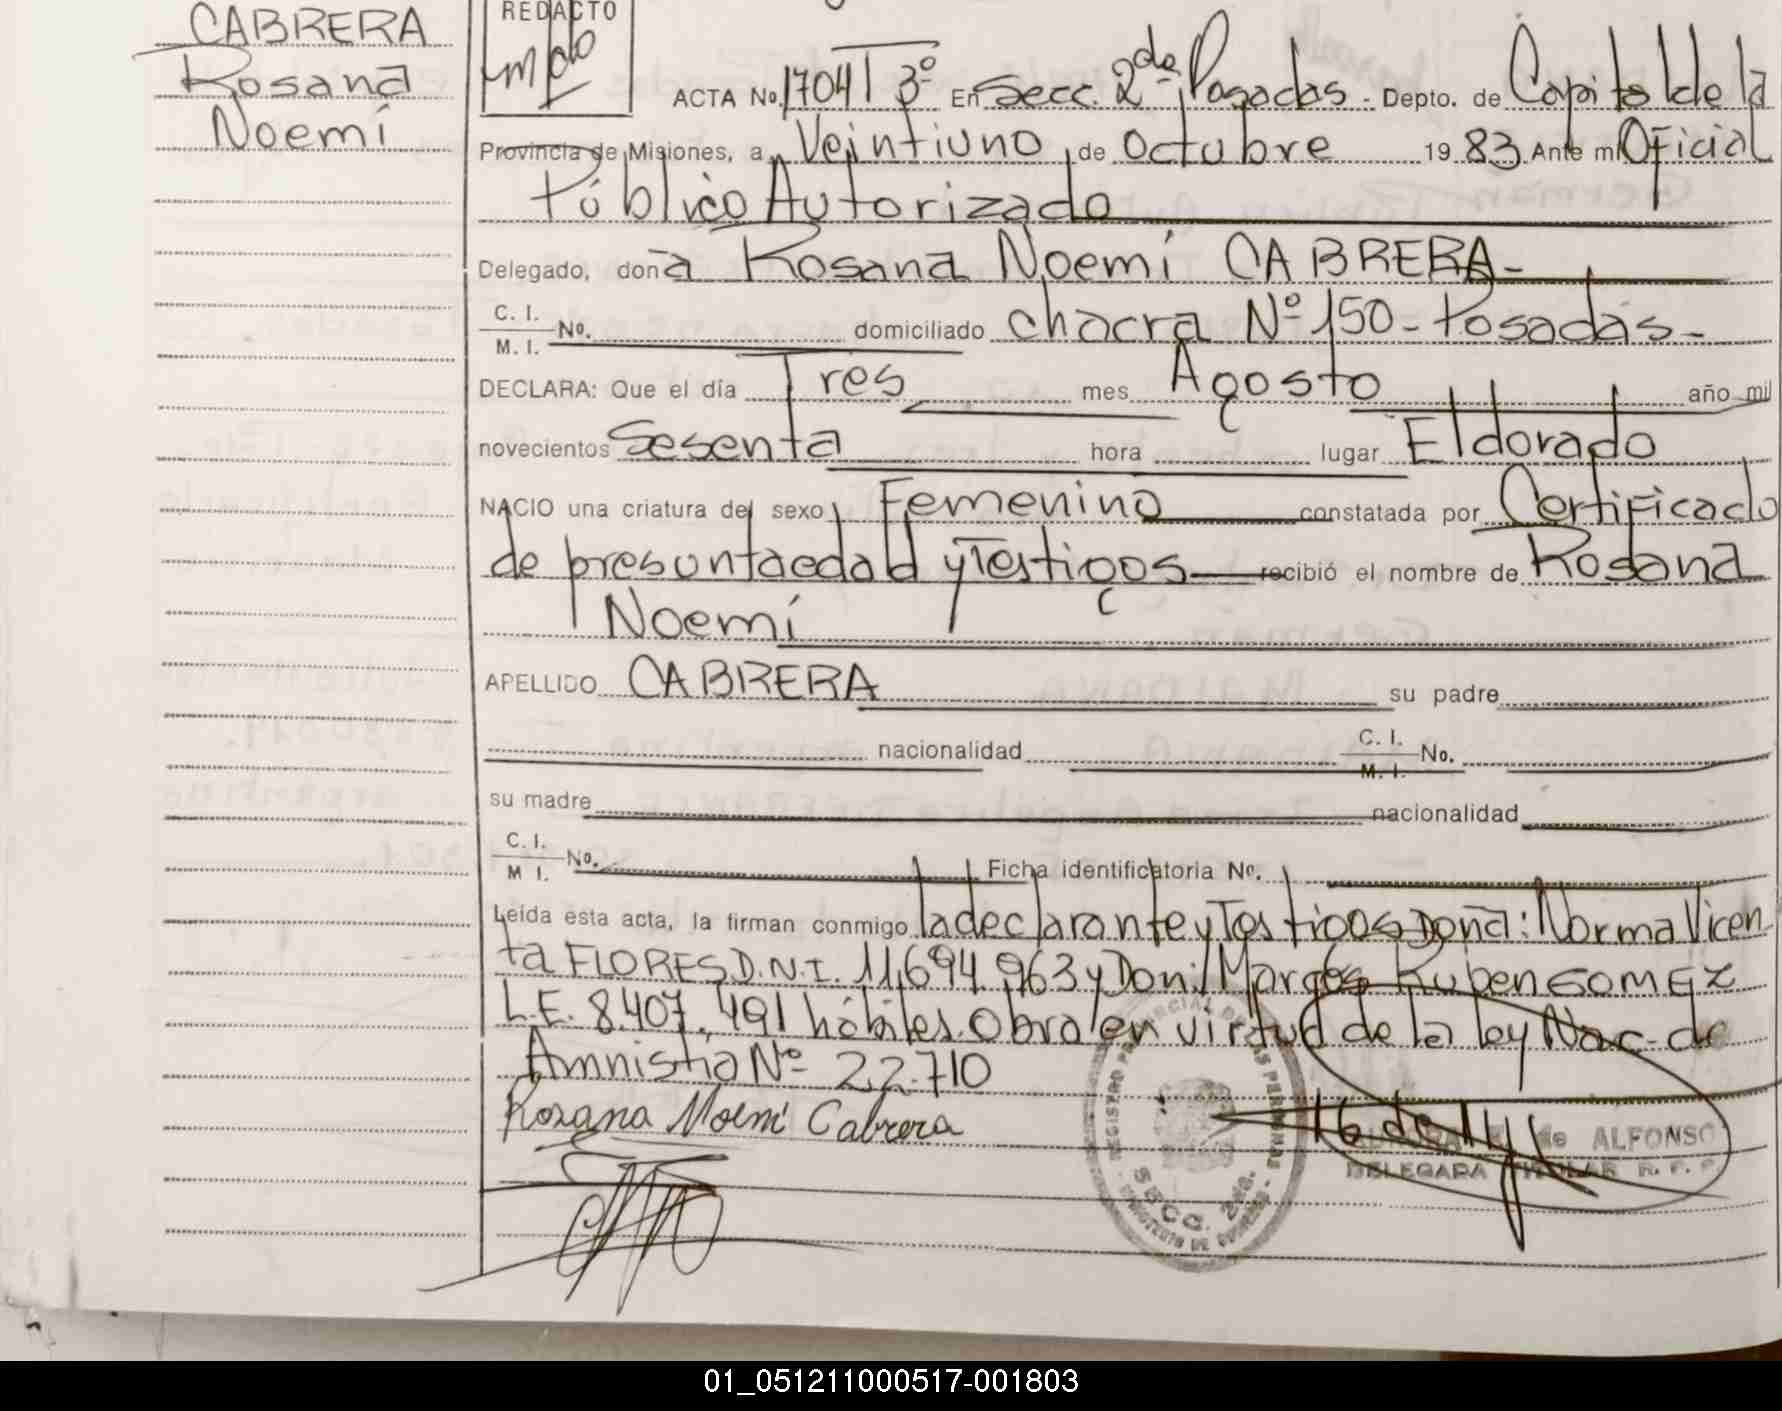 CABRERA
Rosana
Noemí
REDACTO
ACTA No. 1704 T 3º En Secc. 2da, Posadas - Depto. de Capital de la
Provincia de Misiones, a Veintiuno de Octubre 19 83 Ante mi Oficial
Público Autorizado
Delegado, don a Rosana Noemí CABRERA-
C. I.
M. I. No. domiciliado chacra Nº 150 - Posadas -
DECLARA: Que el día Tres mes Agosto año mil
novecientos Sesenta hora lugar Eldorado
NACIO una criatura del sexo Femenino constatada por Certificado
de presunta edad y Testigos recibió el nombre de Rosana
Noemí
APELLIDO CABRERA su padre
nacionalidad C. I.
M. I. No.
su madre nacionalidad
C. I.
M I. No. Ficha identificatoria No.
Leída esta acta, la firman conmigo la declarante y Testigos Doña: Norma Vicen
ta FLORES D.N.I. 11,694,963 y Don: Marcos Ruben GOMEZ
L.E. 8.407.491 hábiles. Obra en virtud de la ley Nac. de
Amnistia Nº 22.710
Rosana Noemí Cabrera
de ALFONSO
DELEGADA TITULAR R. P. P.
SECC. 2da.
01_051211000517-001803